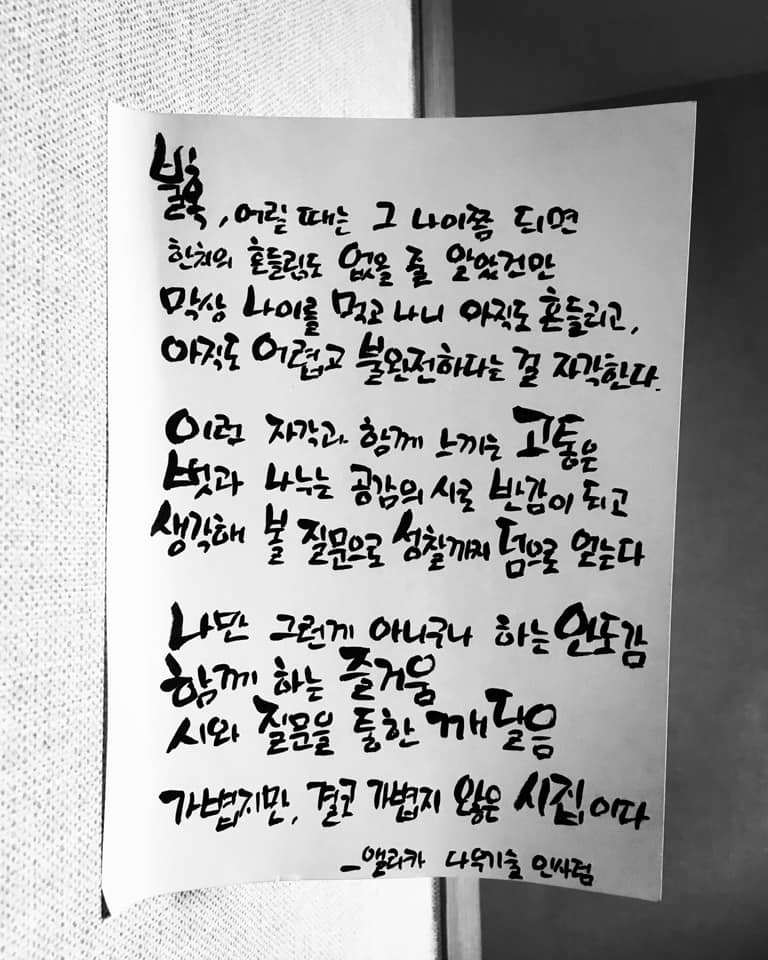 불혹, 어릴 때는 그 나이쯤 되면
한치의 흔들림도 없을 줄 알았건만
막상 나이를 먹고 나니 아직도 흔들리고,
아직도 어렵고 불완전하다는 걸 자각한다.
이런 자각과 함께 느끼는 고통은
벗과 나누는 공감의 시로 반감이 되고
생각해 볼 질문으로 성찰까지 덤으로 얻는다
나만 그런게 아니구나 하는 안도감
함께 하는 즐거움
시와 질문을 통한 깨달음
가볍지만, 결코 가볍지 않은 시집이다
-앨리카 다우기술 인싸덤